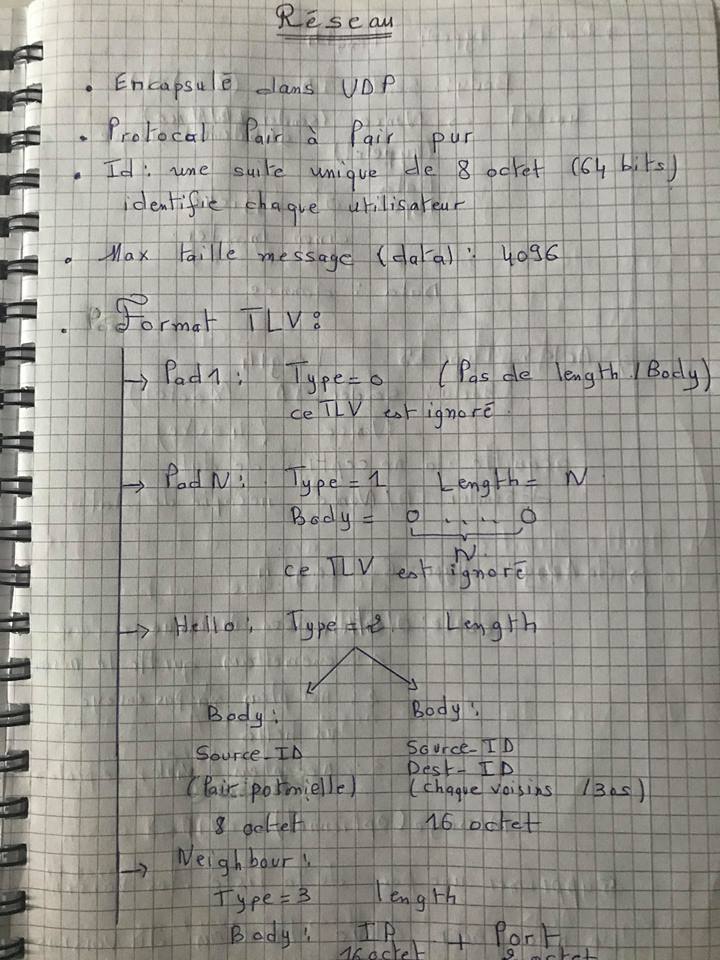 Réseau
• Encapsulé dans UDP
• Protocal Pair à Pair pur
• Id : une suite unique de 8 octet (64 bits)
identifie chaque utilisateur
• Max taille message (data) : 4096
• Format TLV :
→ Pad1 : Type = 0 (Pas de length / Body)
ce TLV est ignoré.
→ PadN : Type = 1 Length = N
Body = 0 .... 0
N
ce TLV est ignoré
→ Hello : Type = 2 Length
Body : Body :
Source-ID Source-ID
Dest-ID
(Pair potmielle) (chaque voisins /30s)
8 octet 16 octet
→ Neighbour :
Type = 3 length
Body : IP + Port
16 octet 2 octet